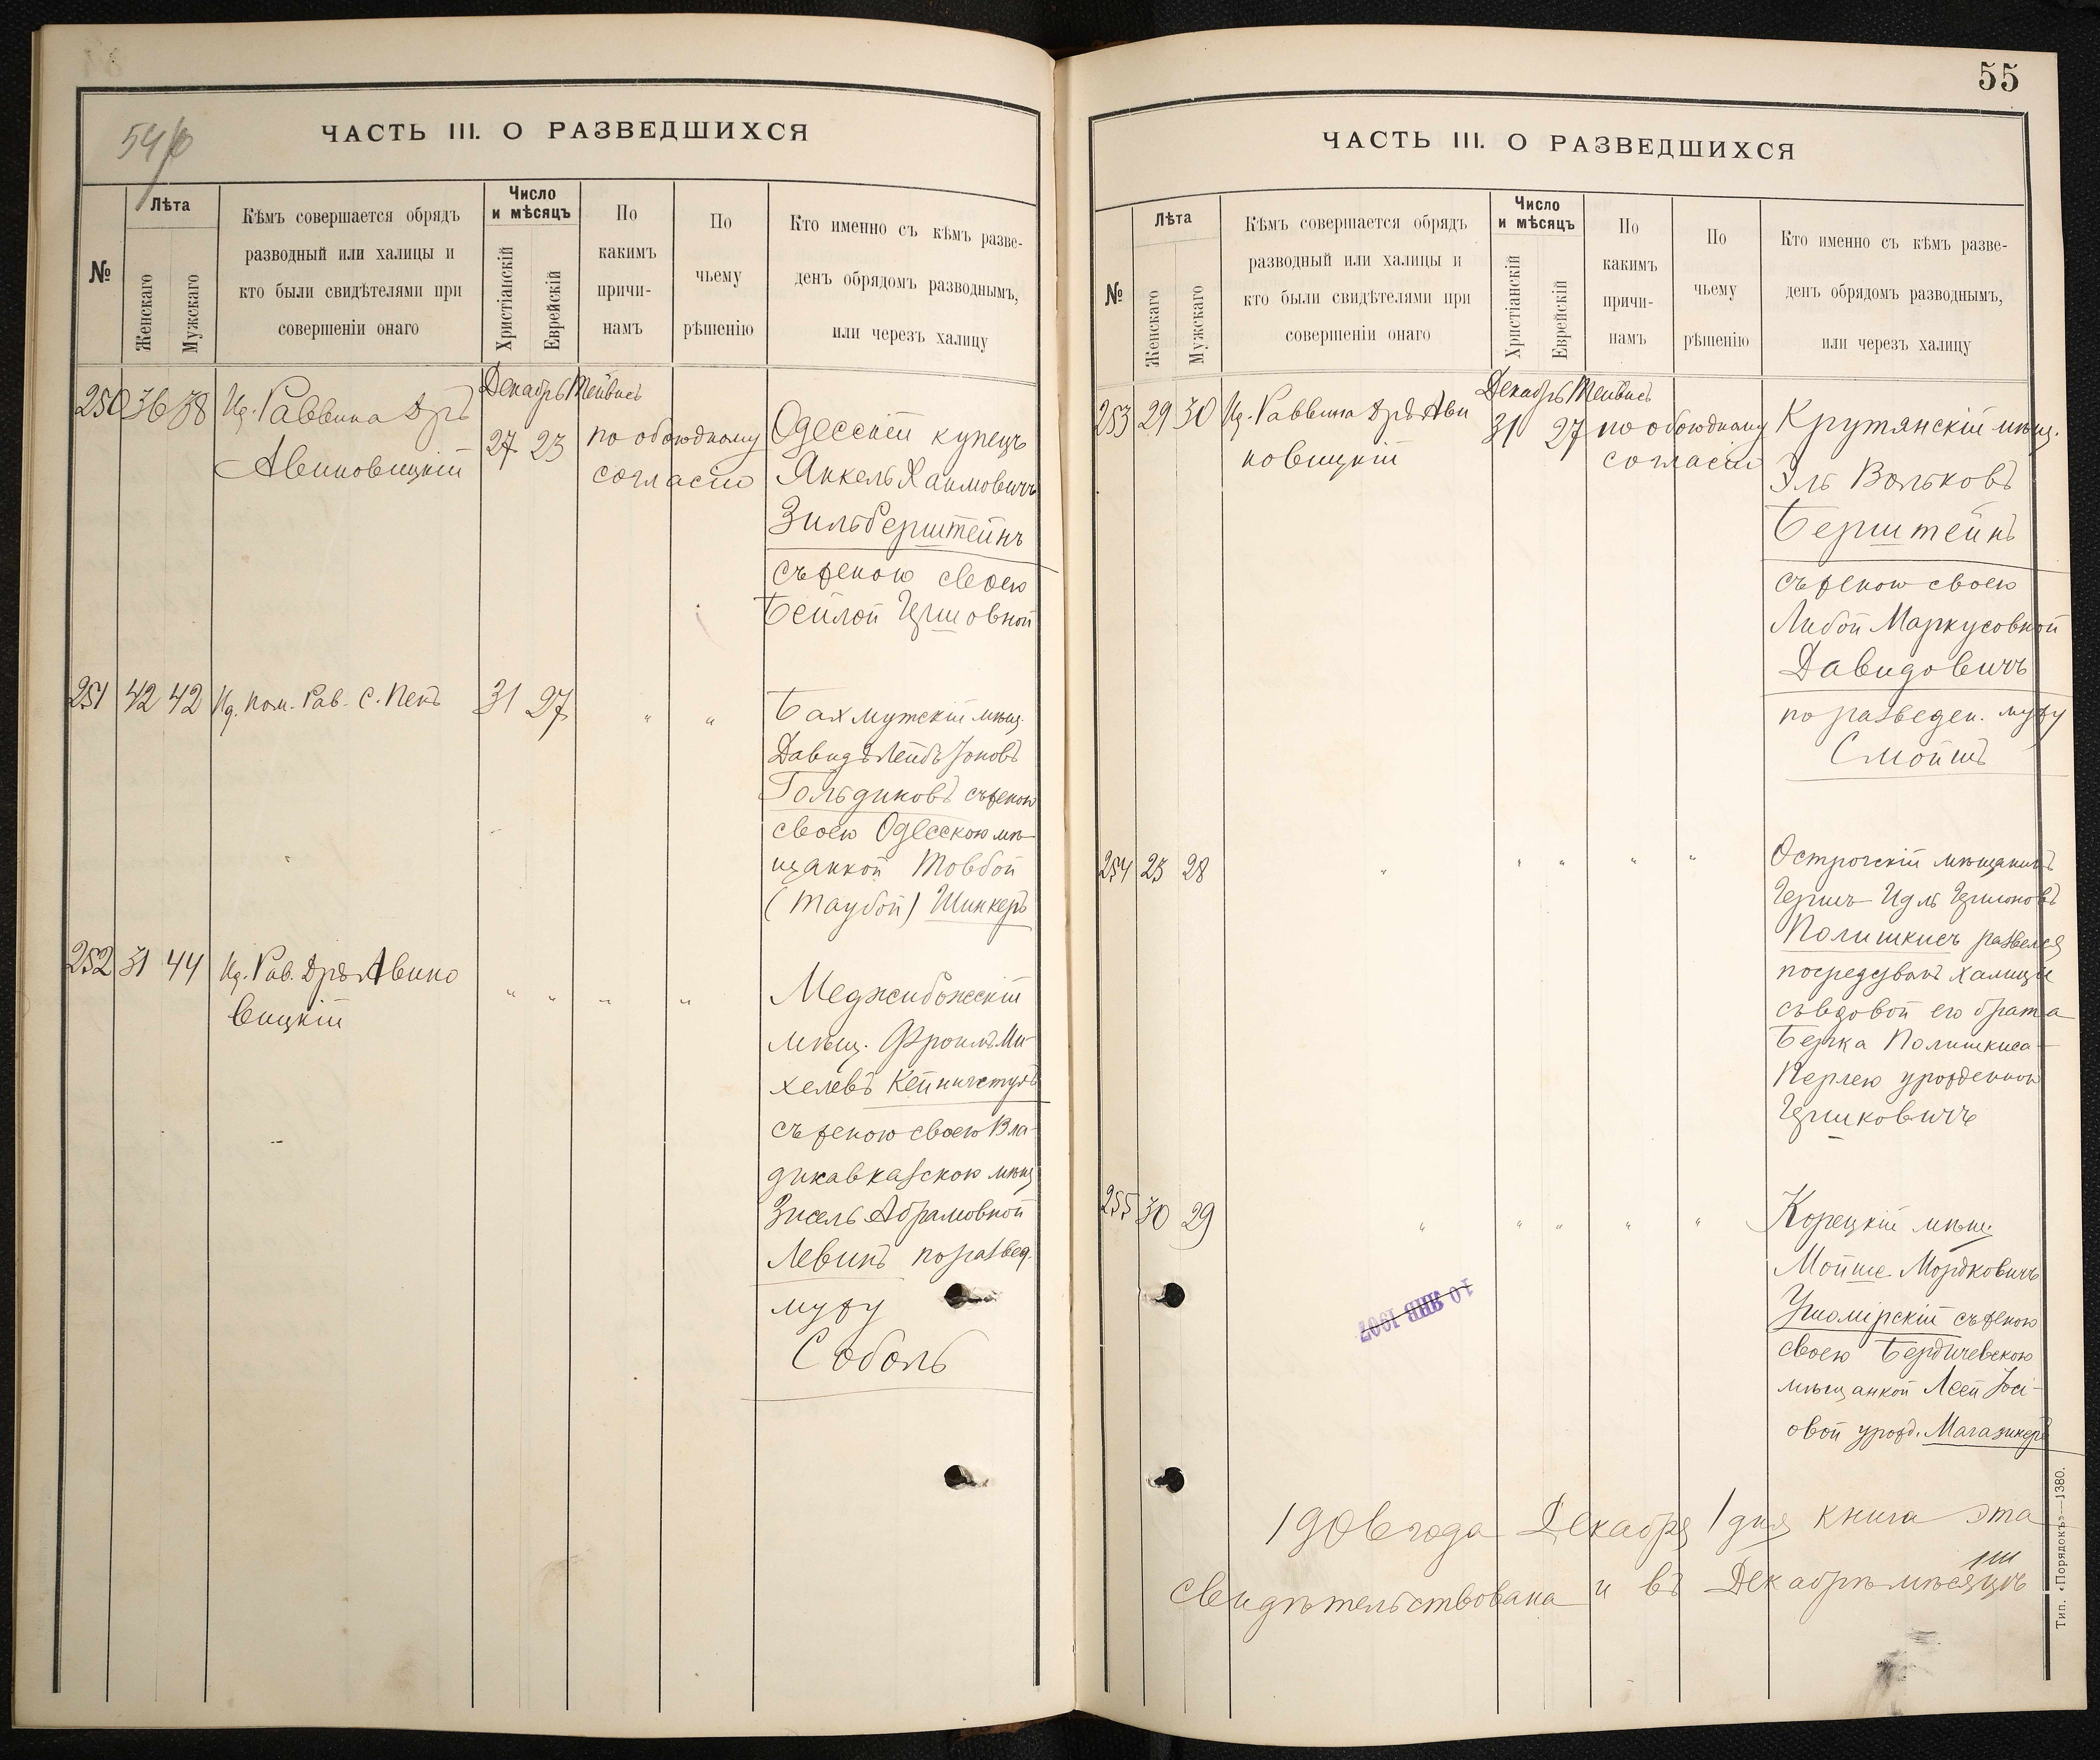 54/б
ЧАСТЬ III. О РАЗВЕДШИХСЯ
№
Лѣта
Женскаго
Мужскаго
Кѣмъ совершается обрядъ
разводный или халицы и
кто были свидѣтелями при
совершеніи онаго
Число
и мѣсяцъ
Христіанскій
Еврейскій
По
какимъ
причи-
намъ
По
чьему
рѣшенію
Кто именно съ кѣмъ разве-
денъ обрядомъ разводнымъ,
или черезъ халицу
Декабрь Тейвисъ
250 36 38 Ид. Раввина Д-ръ
Авиновицкій
27 23
по обоюдному
согласію
Одесскій купецъ
Янкель Хаимовичъ
Зильберштейнъ
съ женою своею
Бейлой Гершовной
251 42 42 Ид. пом. Рав. С. Пенъ 31 27 " "
Бахмутскій мѣщ.
Давидъ Лейбъ Іоновъ
Гольдиновъ съ женою
своею Одесскою мѣ-
щанкой Товбой
(Таубой) Шинкеръ
252 31 44 Ид. Рав. Д-ръ Авино
вицкій
" " " "
Меджибожскій
мѣщ. Фроимъ Ми-
хелевъ
съ женою своею Вла-
дикавказскою мѣщ
Зисель Абрамовной
Левинъ по развед.
мужу
Соболь
55
ЧАСТЬ III. О РАЗВЕДШИХСЯ
№
Лѣта
Женскаго
Мужскаго
Кѣмъ совершается обрядъ
разводный или халицы и
кто были свидѣтелями при
совершеніи онаго
Число
и мѣсяцъ
Христіанскій
Еврейскій
По
какимъ
причи-
намъ
По
чьему
рѣшенію
Кто именно съ кѣмъ разве-
денъ обрядомъ разводнымъ,
или черезъ халицу
Декабрь Тейвисъ
253 29 30 Ид. Раввина Д-ръ Ави
новицкій
31 27
по обоюдному
согласію
Крутянскій мѣщ.
Эль Вольковъ
Берштейнъ
съ женою своею
Либой Маркусовной
Давидовичъ
по разведен. мужу
Смойшъ
254 23 28 " " " " "
Острогскій мѣщанинъ
Гершъ-Идль Гершоновъ
Полишкисъ развелся
посредствомъ халицы
съ вдовой его брата
Берка Полишкиса
Перлею урожденной
Гершковичъ
255 30 29 " " " " "
Корецкій мѣщ.
Мойше Мордковичъ
Ушомірскій съ женою
своею Бердичевскою
мѣщанкой Леей Іосі-
овой урожд. Магазинеръ
10 ЯНВ 1907
1906 года Декабря 1 дня книга эта
свидѣтельствована и въ Декабрѣ мѣсяцѣ
Тип. «Порядокъ»—1380.